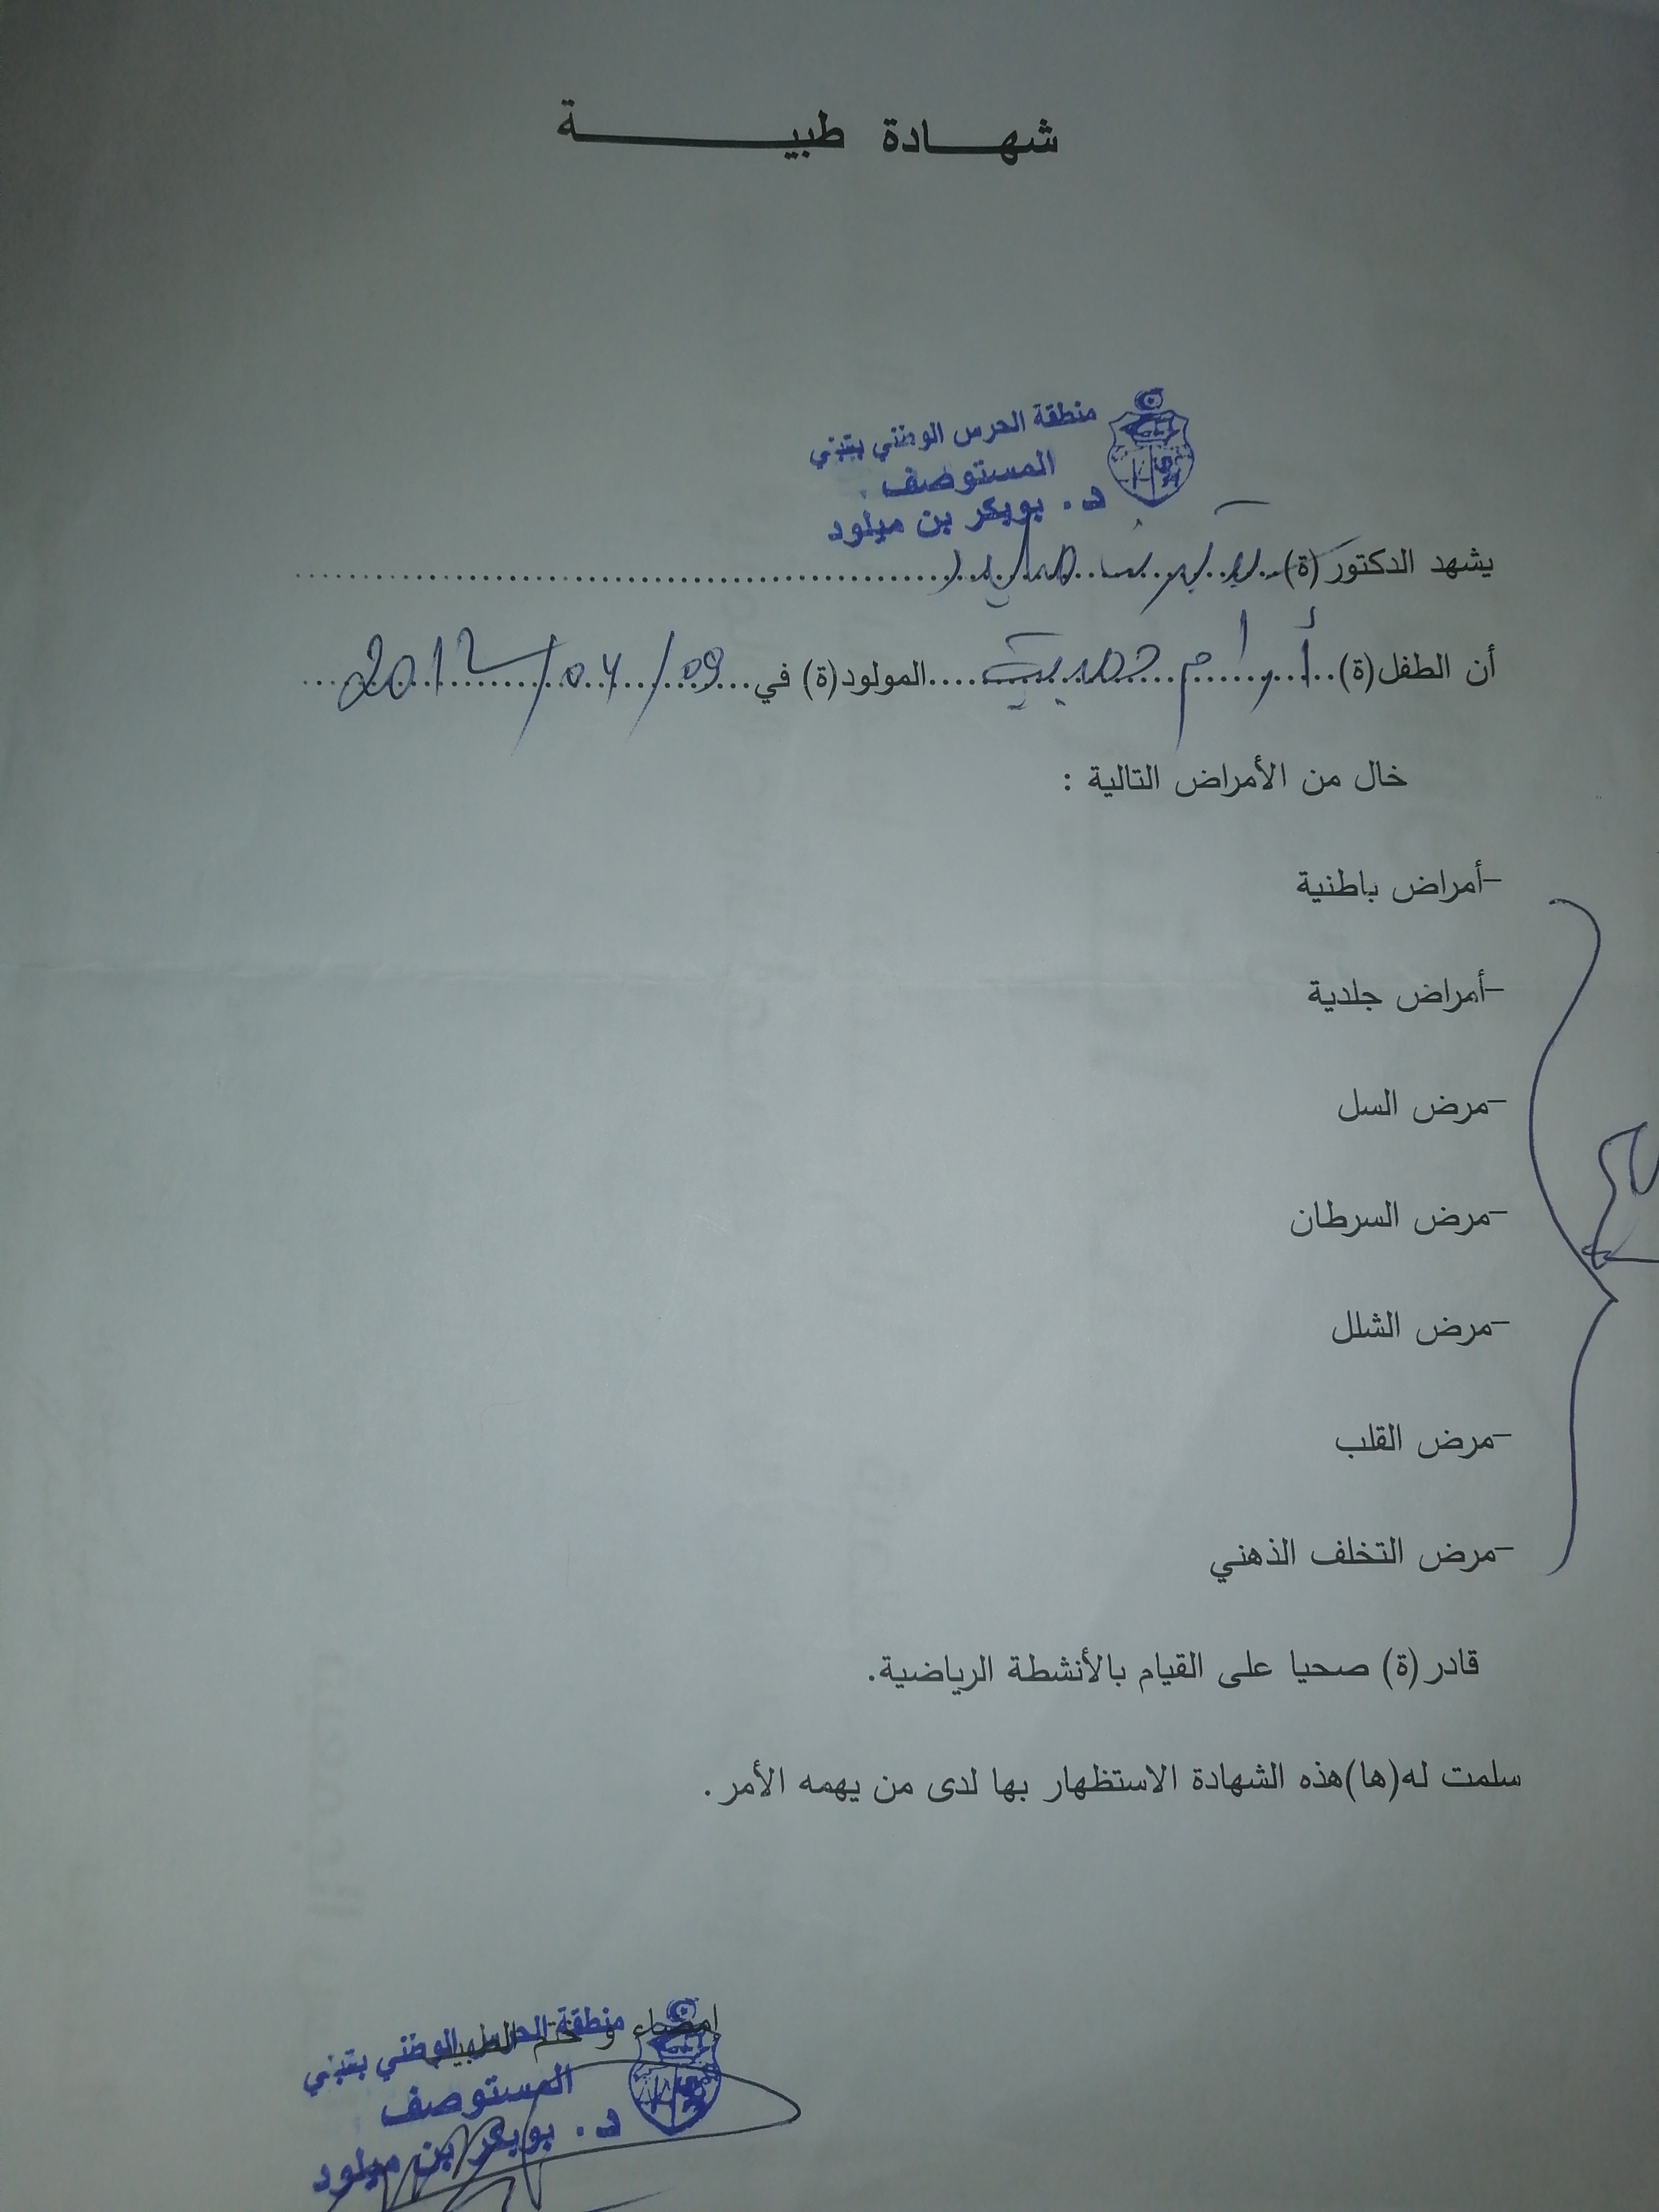 شهادة طبية
منطقة الحرس الوطني بقبلي
المستوصف
د. بوبكر بن ميلود
يشهد الدكتور(ة)
أن الطفل(ة) المولود(ة) في 09/04/2012
خال من الأمراض التالية :
-أمراض باطنية
-أمراض جلدية
-مرض السل
-مرض السرطان
-مرض الشلل
-مرض القلب
-مرض التخلف الذهني
قادر(ة) صحيا على القيام بالأنشطة الرياضية.
سلمت له(ها)هذه الشهادة الاستظهار بها لدى من يهمه الأمر.
إمضاء و ختم الطبيب
منطقة الحرس الوطني بقبلي
المستوصف
د. بوبكر بن ميلود